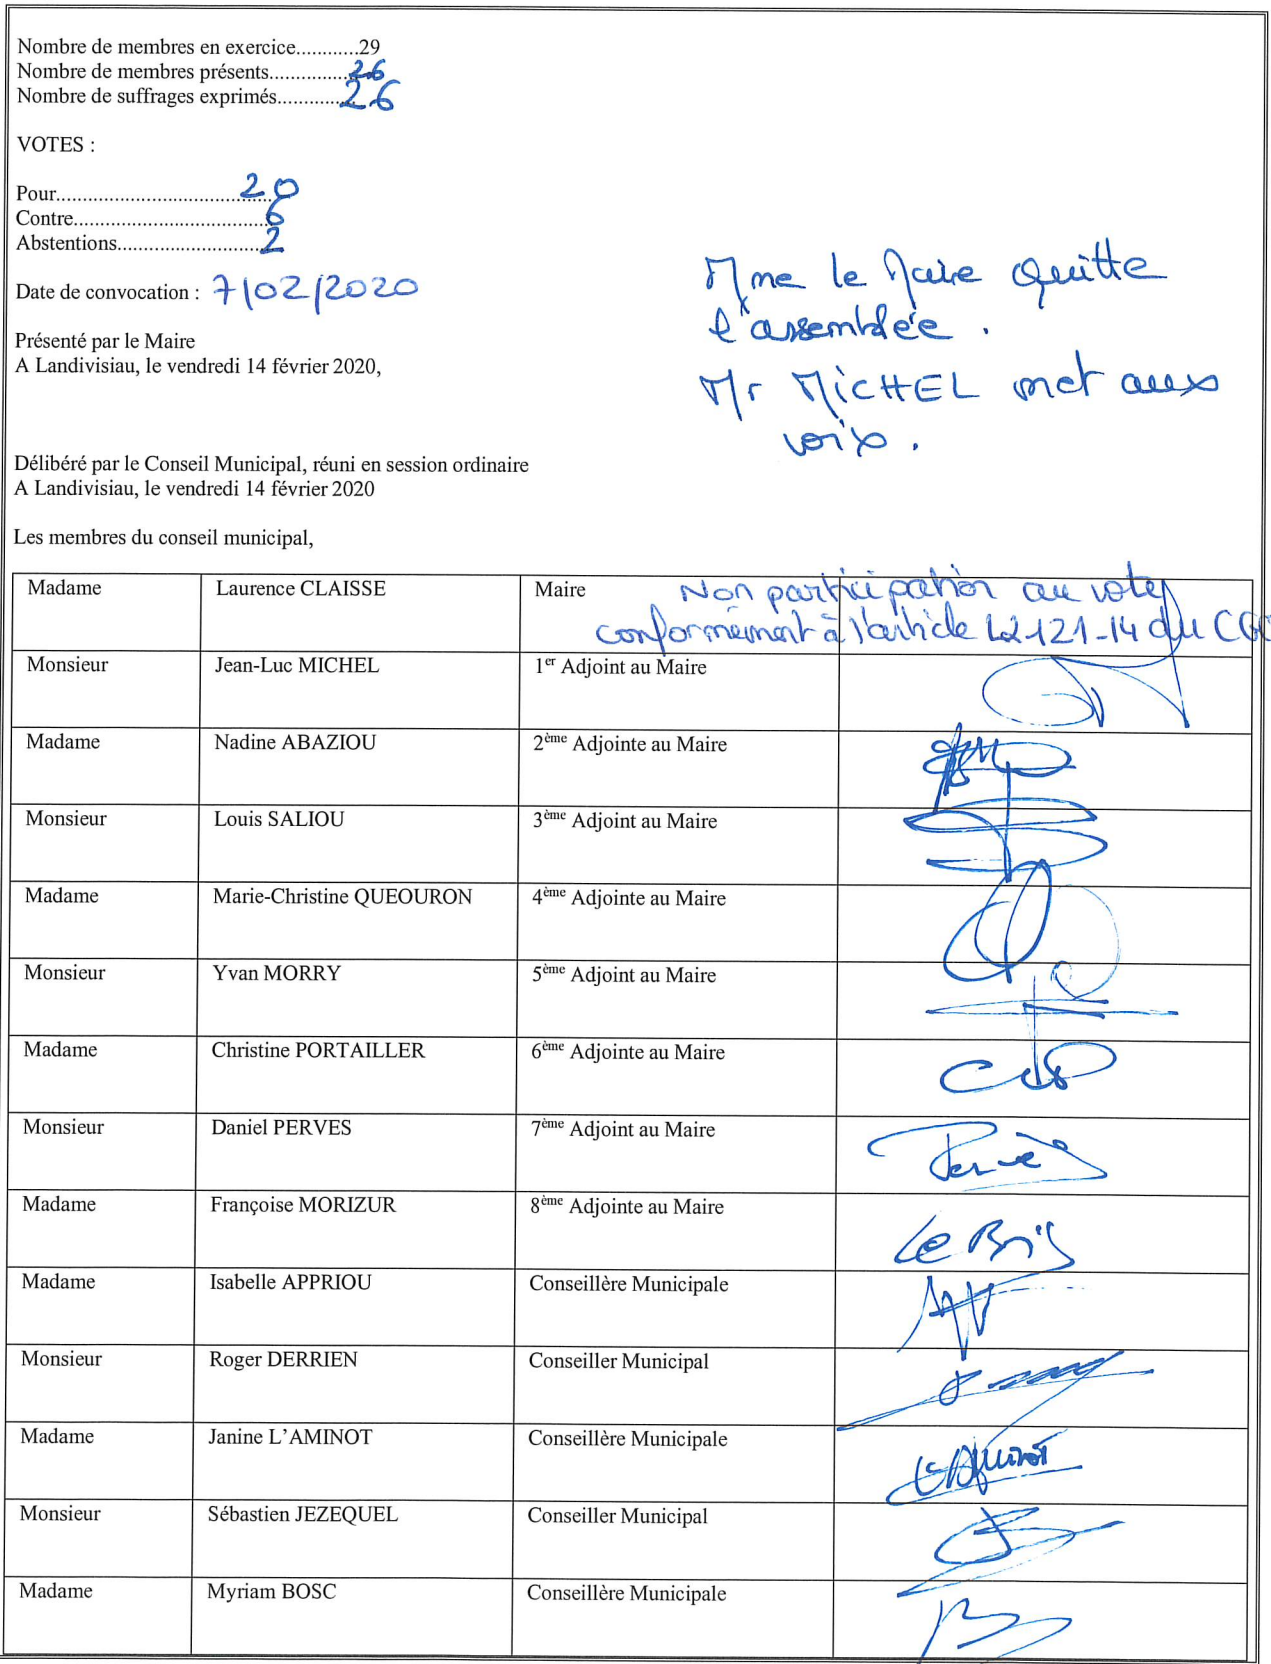 Nombre de membres en exercice............29
Nombre de membres présents...............26
Nombre de suffrages exprimés...............26
VOTES :
Pour.........................................20
Contre.....................................6
Abstentions...........................2
Date de convocation : 7/02/2020
Mme le Maire quitte
l'assemblée.
Présenté par le Maire
A Landivisiau, le vendredi 14 février 2020,
Mr MICHEL met aux
voix.
Délibéré par le Conseil Municipal, réuni en session ordinaire
A Landivisiau, le vendredi 14 février 2020
Les membres du conseil municipal,
Madame Laurence CLAISSE Maire Non participation au vote
conformément à l'article L2121-14 du CG
Monsieur Jean-Luc MICHEL 1er Adjoint au Maire
Madame Nadine ABAZIOU 2ème Adjointe au Maire
Monsieur Louis SALIOU 3ème Adjoint au Maire
Madame Marie-Christine QUEOURON 4ème Adjointe au Maire
Monsieur Yvan MORRY 5ème Adjoint au Maire
Madame Christine PORTAILLER 6ème Adjointe au Maire
Monsieur Daniel PERVES 7ème Adjoint au Maire
Madame Françoise MORIZUR 8ème Adjointe au Maire
Le Bris
Madame Isabelle APPRIOU Conseillère Municipale
Monsieur Roger DERRIEN Conseiller Municipal
Madame Janine L'AMINOT Conseillère Municipale
L'Aminot
Monsieur Sébastien JEZEQUEL Conseiller Municipal
Madame Myriam BOSC Conseillère Municipale